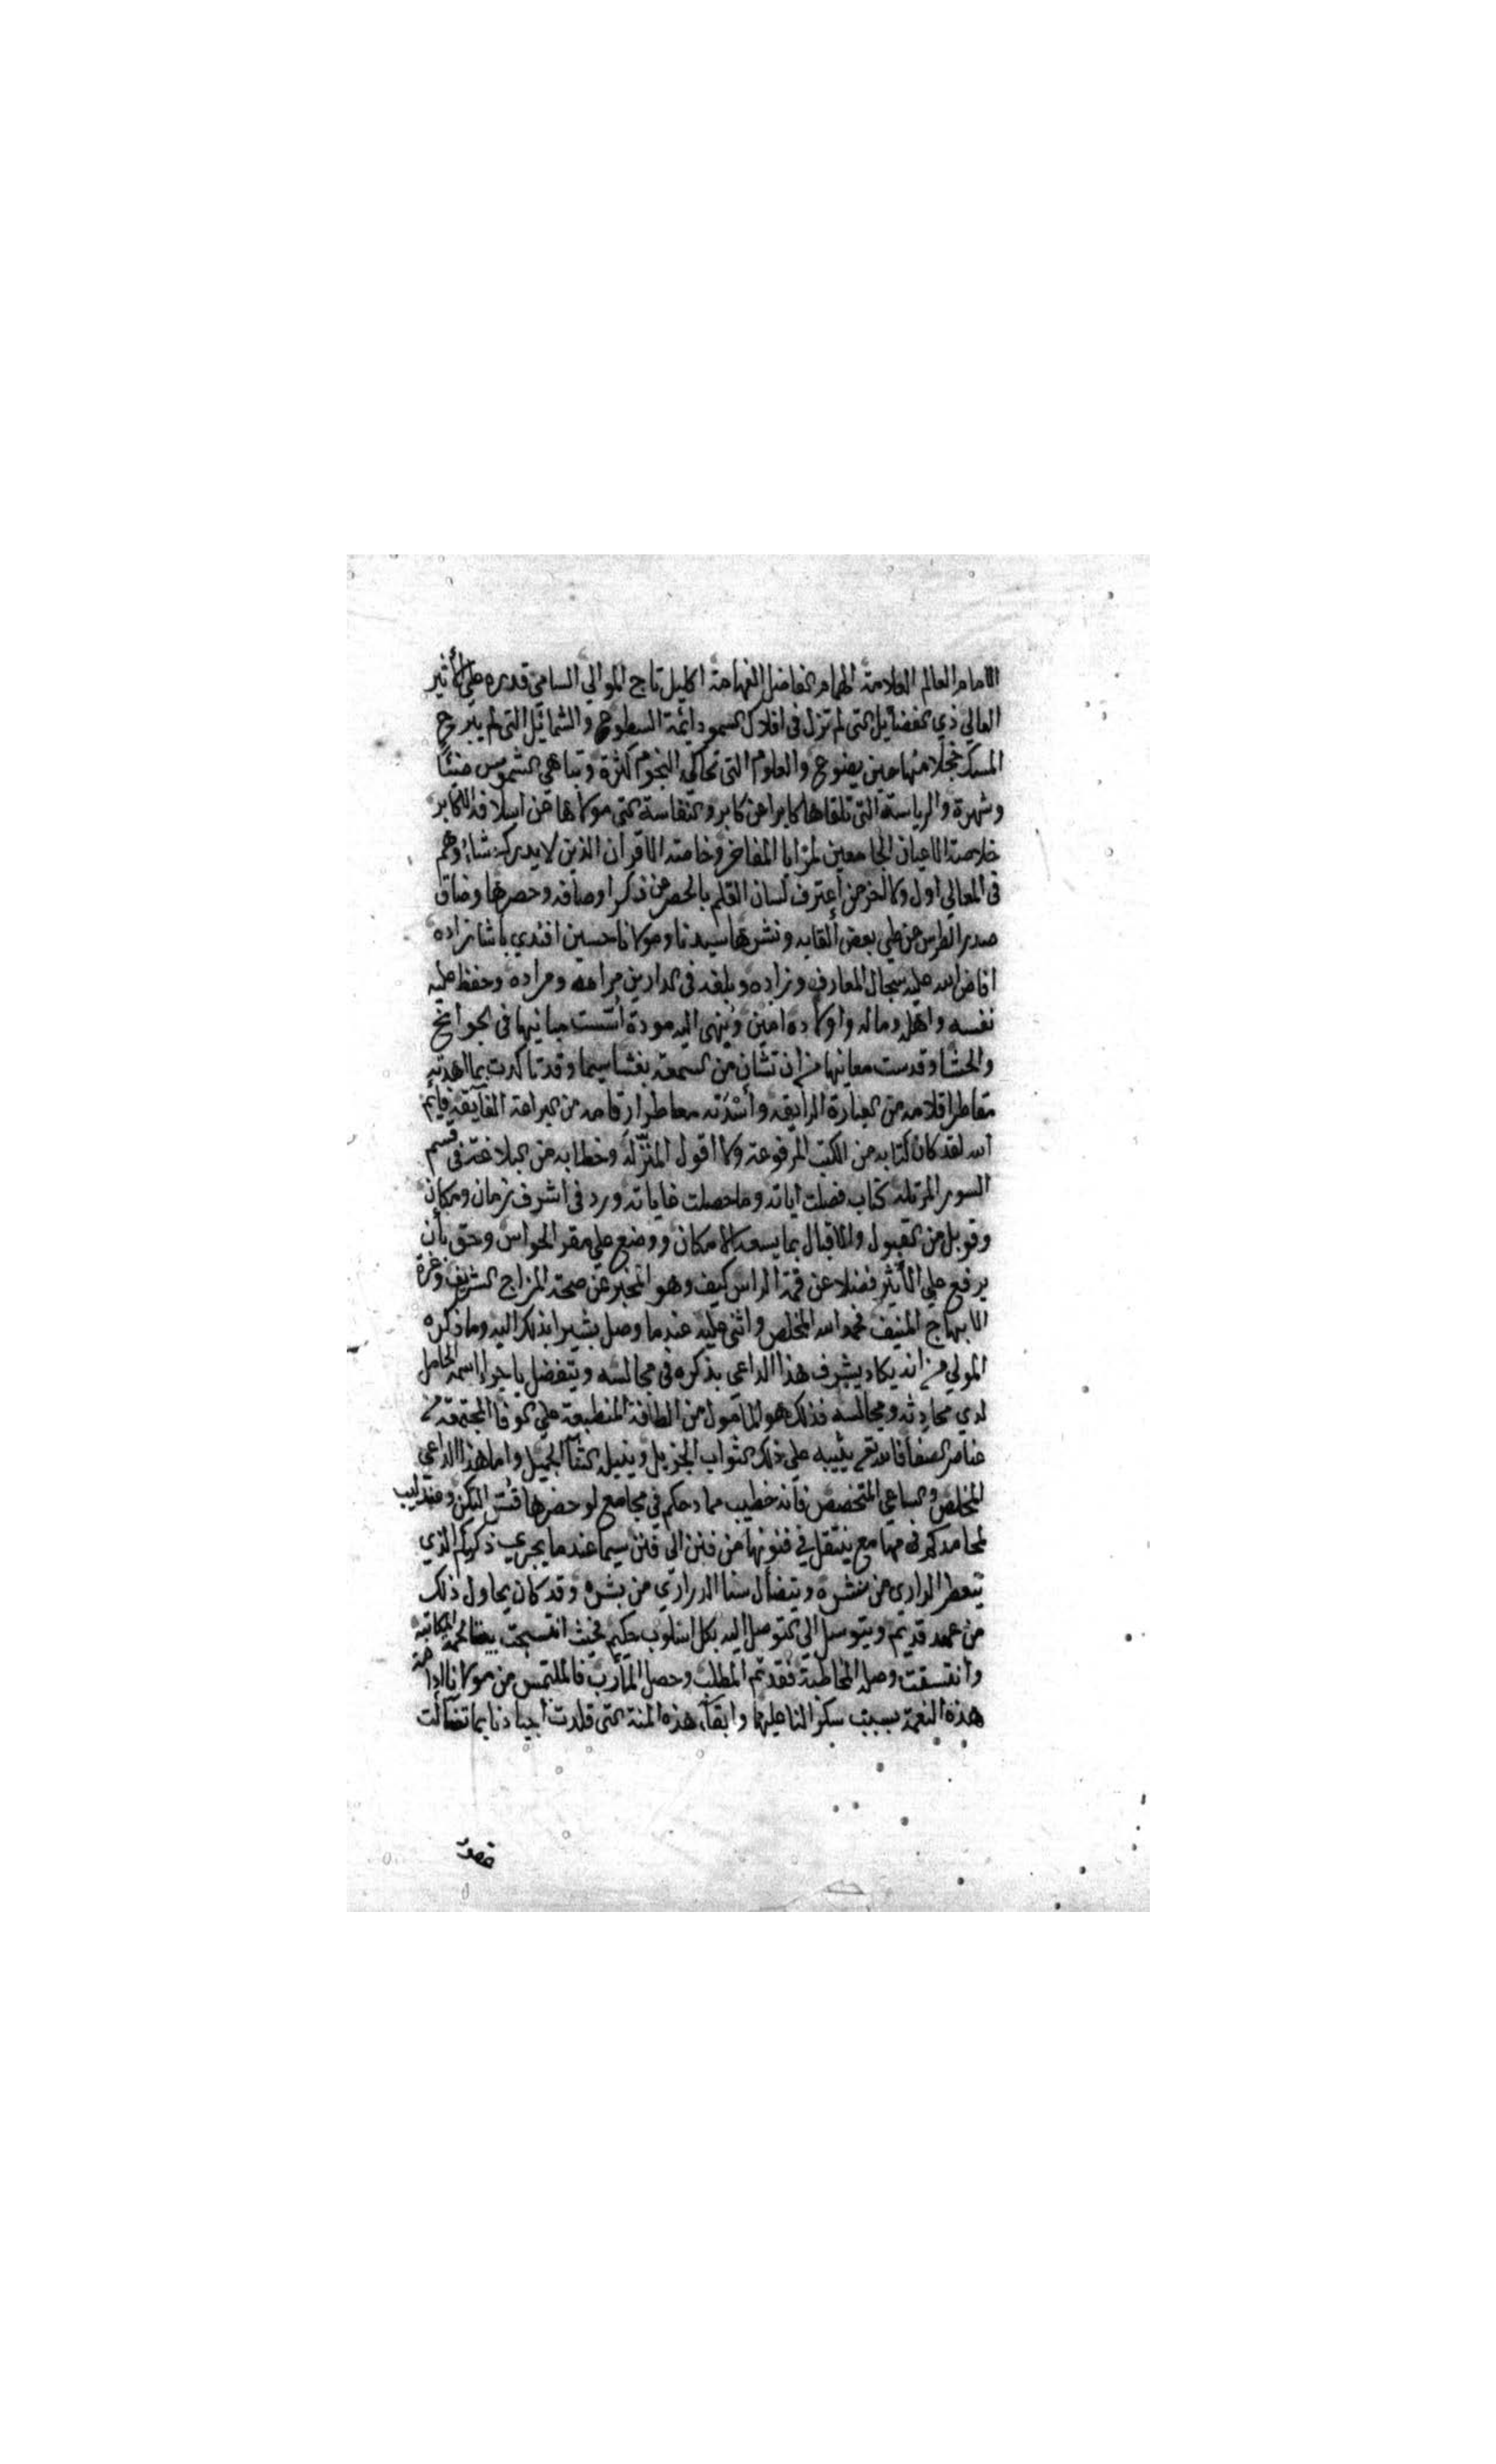 الامام العالم العلامة الهمام الفاضل الفهامة اكليل تاج الموالي السامي قدره علي الأثير
العالي ذي الفضايل التى لم تزل فى افلاك السمو دائمة السطوح والشمائل التى لم يبرح
المسك خجلا منها حين يضوع والعلوم التى تحاكي النجوم كثرة وتباهي الشموس ضيئا
وشهرة والرياسة التى تلقاها كابرا عن كابر والنفاسة التى عن اسلافه الاكابر
خلاصة الاعيان الجامعين لمزايا المفاخر وخاصة الاقران الذين لا يدرك شاؤهم
فى المعالي اول ولا اخر من اعترف لسان القلم بالحصر عن ذكر اوصافه وحصرها وضاق
صدر الطرس عن طي بعض ألقابه ونشرها سيدنا ومولانا حسين افندي باشا زاده
افاض الله عليه سجال المعارف وزاده وبلغه فى الدارين مرامه ومراده وحفظ عليه
نفسه واهله وماله واولاده امين وينهى اليه مودة اسست مبانيها فى الجوانح
والحشا وقدست معانيها من ان تشان من السمعة بغشا سيما وقد تاكدت بما اهدته
مقاطر اقلامه من العبارة الرايقه وأسْدَته معاطر ارقامه من البراعة الفآيقة فايم
الله لقد كان كتابه من الكتب المرفوعة ولا اقول المنَزَّلة وخطابه من البلاغة فى قسم
السور المرتله كتاب فصلت اياته وما حصلت غاياته ورد فى اشرف زمان ومكان
وقوبل من القبول والاقبال بما يسعه الامكان ووضع علي مقر الحواس وحق بأن
يرفع علي الأثير فضلا عن قمة الراس كيف وهو المخبر عن صحة المزاج الشريف وغرة
الابهاج المنيف فحمد الله المخلص واثنى عليه عندما وصل بشيرا بذلك اليه وما ذكره
المولي من انه يكاد يشرف هذا الداعى بذكره فى مجالسه ويتفضل باجراء اسمه الخامل
لدي محادثه ومجالسه فذلك هو المامول من الطافه المنطبعة علي الوفا المجتمعة من
عناصر الصفا فالله تعم يثيبه على ذلك الثواب الجزيل وينيله الثنآ الجميل واما هذا الداعي
المخلص والساعي المتخصص فأنه خطيب ممادحكم في مجامع لو حضرها قُسّ وعندليب
لمحامدكم فى ينتقل في فنونها من فنن الى فنن سيما عندما يجري ذكركم الذي
يتعطر الداري من نشره ويتضأل سنا الدراري من بشره وقد كان يحاول ذلك
من عهد قديم ويتوسل الي التوصل اليه بكل اسلوب حكيم فحيث انتسجت بيننا لحمة المكاتبة
وانتسقت وصلة المخاطبة فقد تم المطلب وحصل المآرب فالملتمس من مولانا ادامة
هذه النعمة بسبب عليها وابقآء هذه المنة التى قلدت اجيادنا بما تضآلت